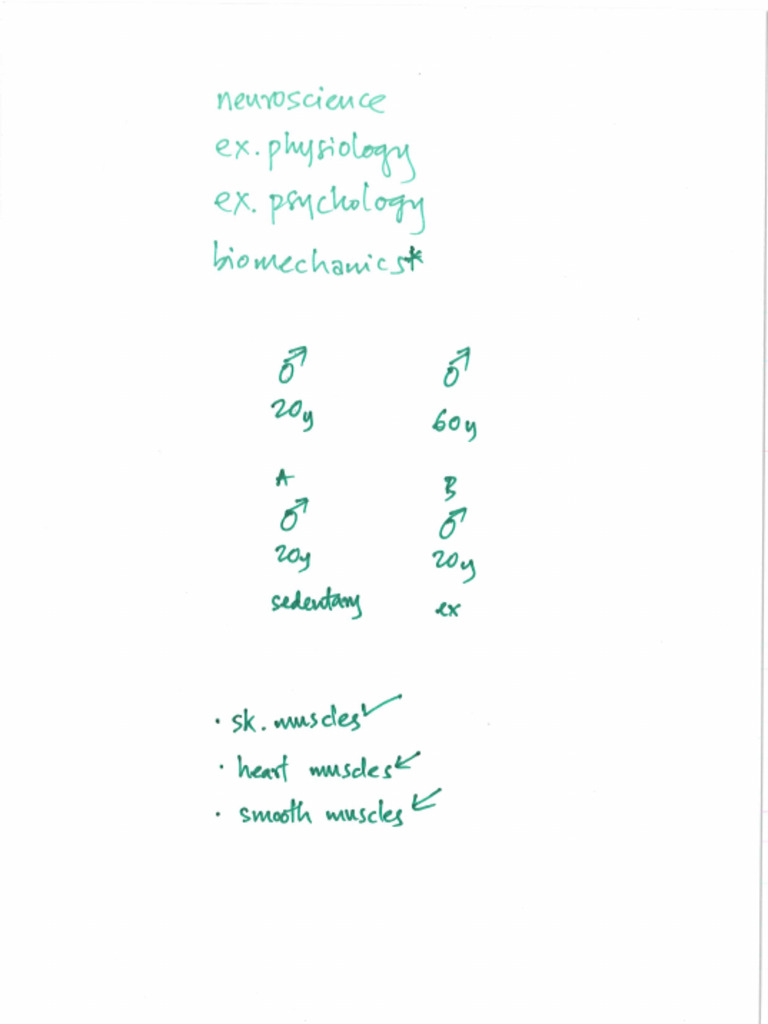 neuroscience
ex. physiology
ex. psychology
biomechanics*
♂ ♂
20y 60y
A B
♂ ♂
20y 20y
sedentary ex
· sk. muscles ✓
· heart muscles ↙
· smooth muscles ↙